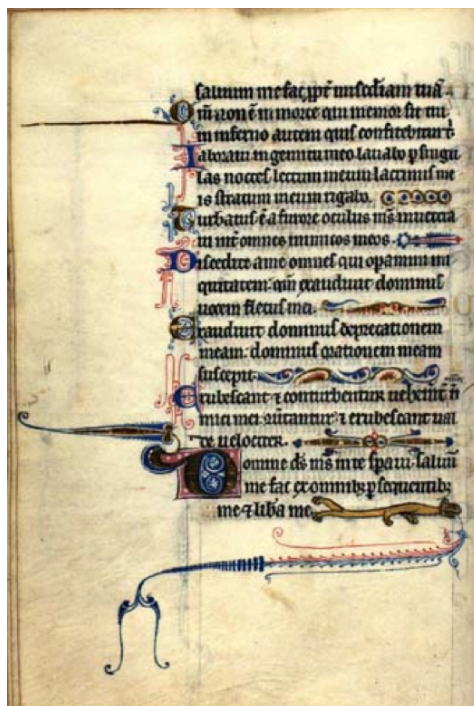 saluum me fac ꝓpt̄ misc̄diam tuā
Qm̄ non ē in morte qui memor sit tui
in inferno autem quis confitebitur t̄
Laboraui in gemitu meo lauabo ꝑ singu
las noctes lectum meum lacrimis me
is stratum meum rigabo.
Turbatus ē a furore oculus ms̄ inuetera
ui int̄ omnes inimicos meos.
Discedite a me omnes qui oꝑamini ini
quitatem: qm̄ exaudiuit dominus
uocem fletus mei.
Exaudiuit dominus deprecationem
meam: dominus orationem meam
suscepit
Erubescant ⁊ conturbentur uehem̄t īn
mici mei: ꝯūtantur ⁊ erubescant ual
de uelociter.
Domine ds̄ ms̄ in te sꝑaui: saluū
me fac ex omnibꝫ ꝑsequentibꝫ
me ⁊ lib̄a me.